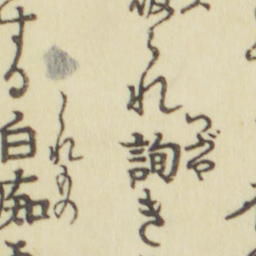 られ詢き
つぶや
する白痴
しれもの